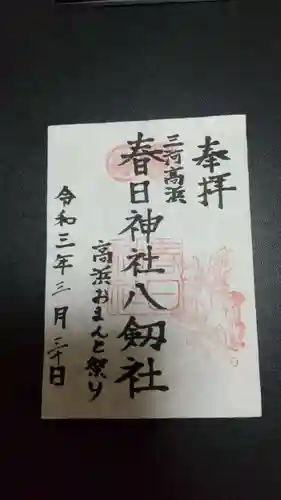 奉拝
三河高浜
春日神社八剱社
高浜おまんと祭り
令和三年三月三十日